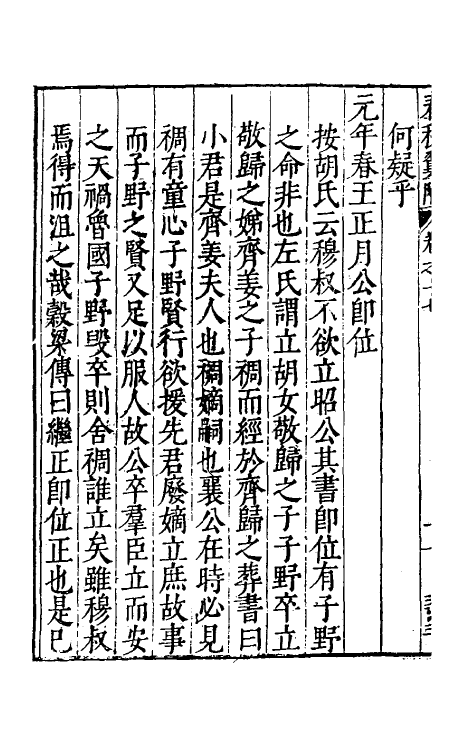 何疑乎
元年春王正月公卽位
按胡氏云穆叔不欲立昭公其書卽位有子野
之命非也左氏謂立胡女敬歸之子子野卒立
敬歸之娣齊姜之子稠而經於齊歸之葬書曰
小君是齊姜夫人也稠嫡嗣也襄公在時必見
稠有童心子野賢行欲援先君廢嫡立庶故事
而子野之賢又足以服人故公卒羣臣立而安
之天禍魯國子野毁卒則舍稠誰立矣雖穆叔
焉得而沮之哉穀梁傳曰繼正卽位正也是已